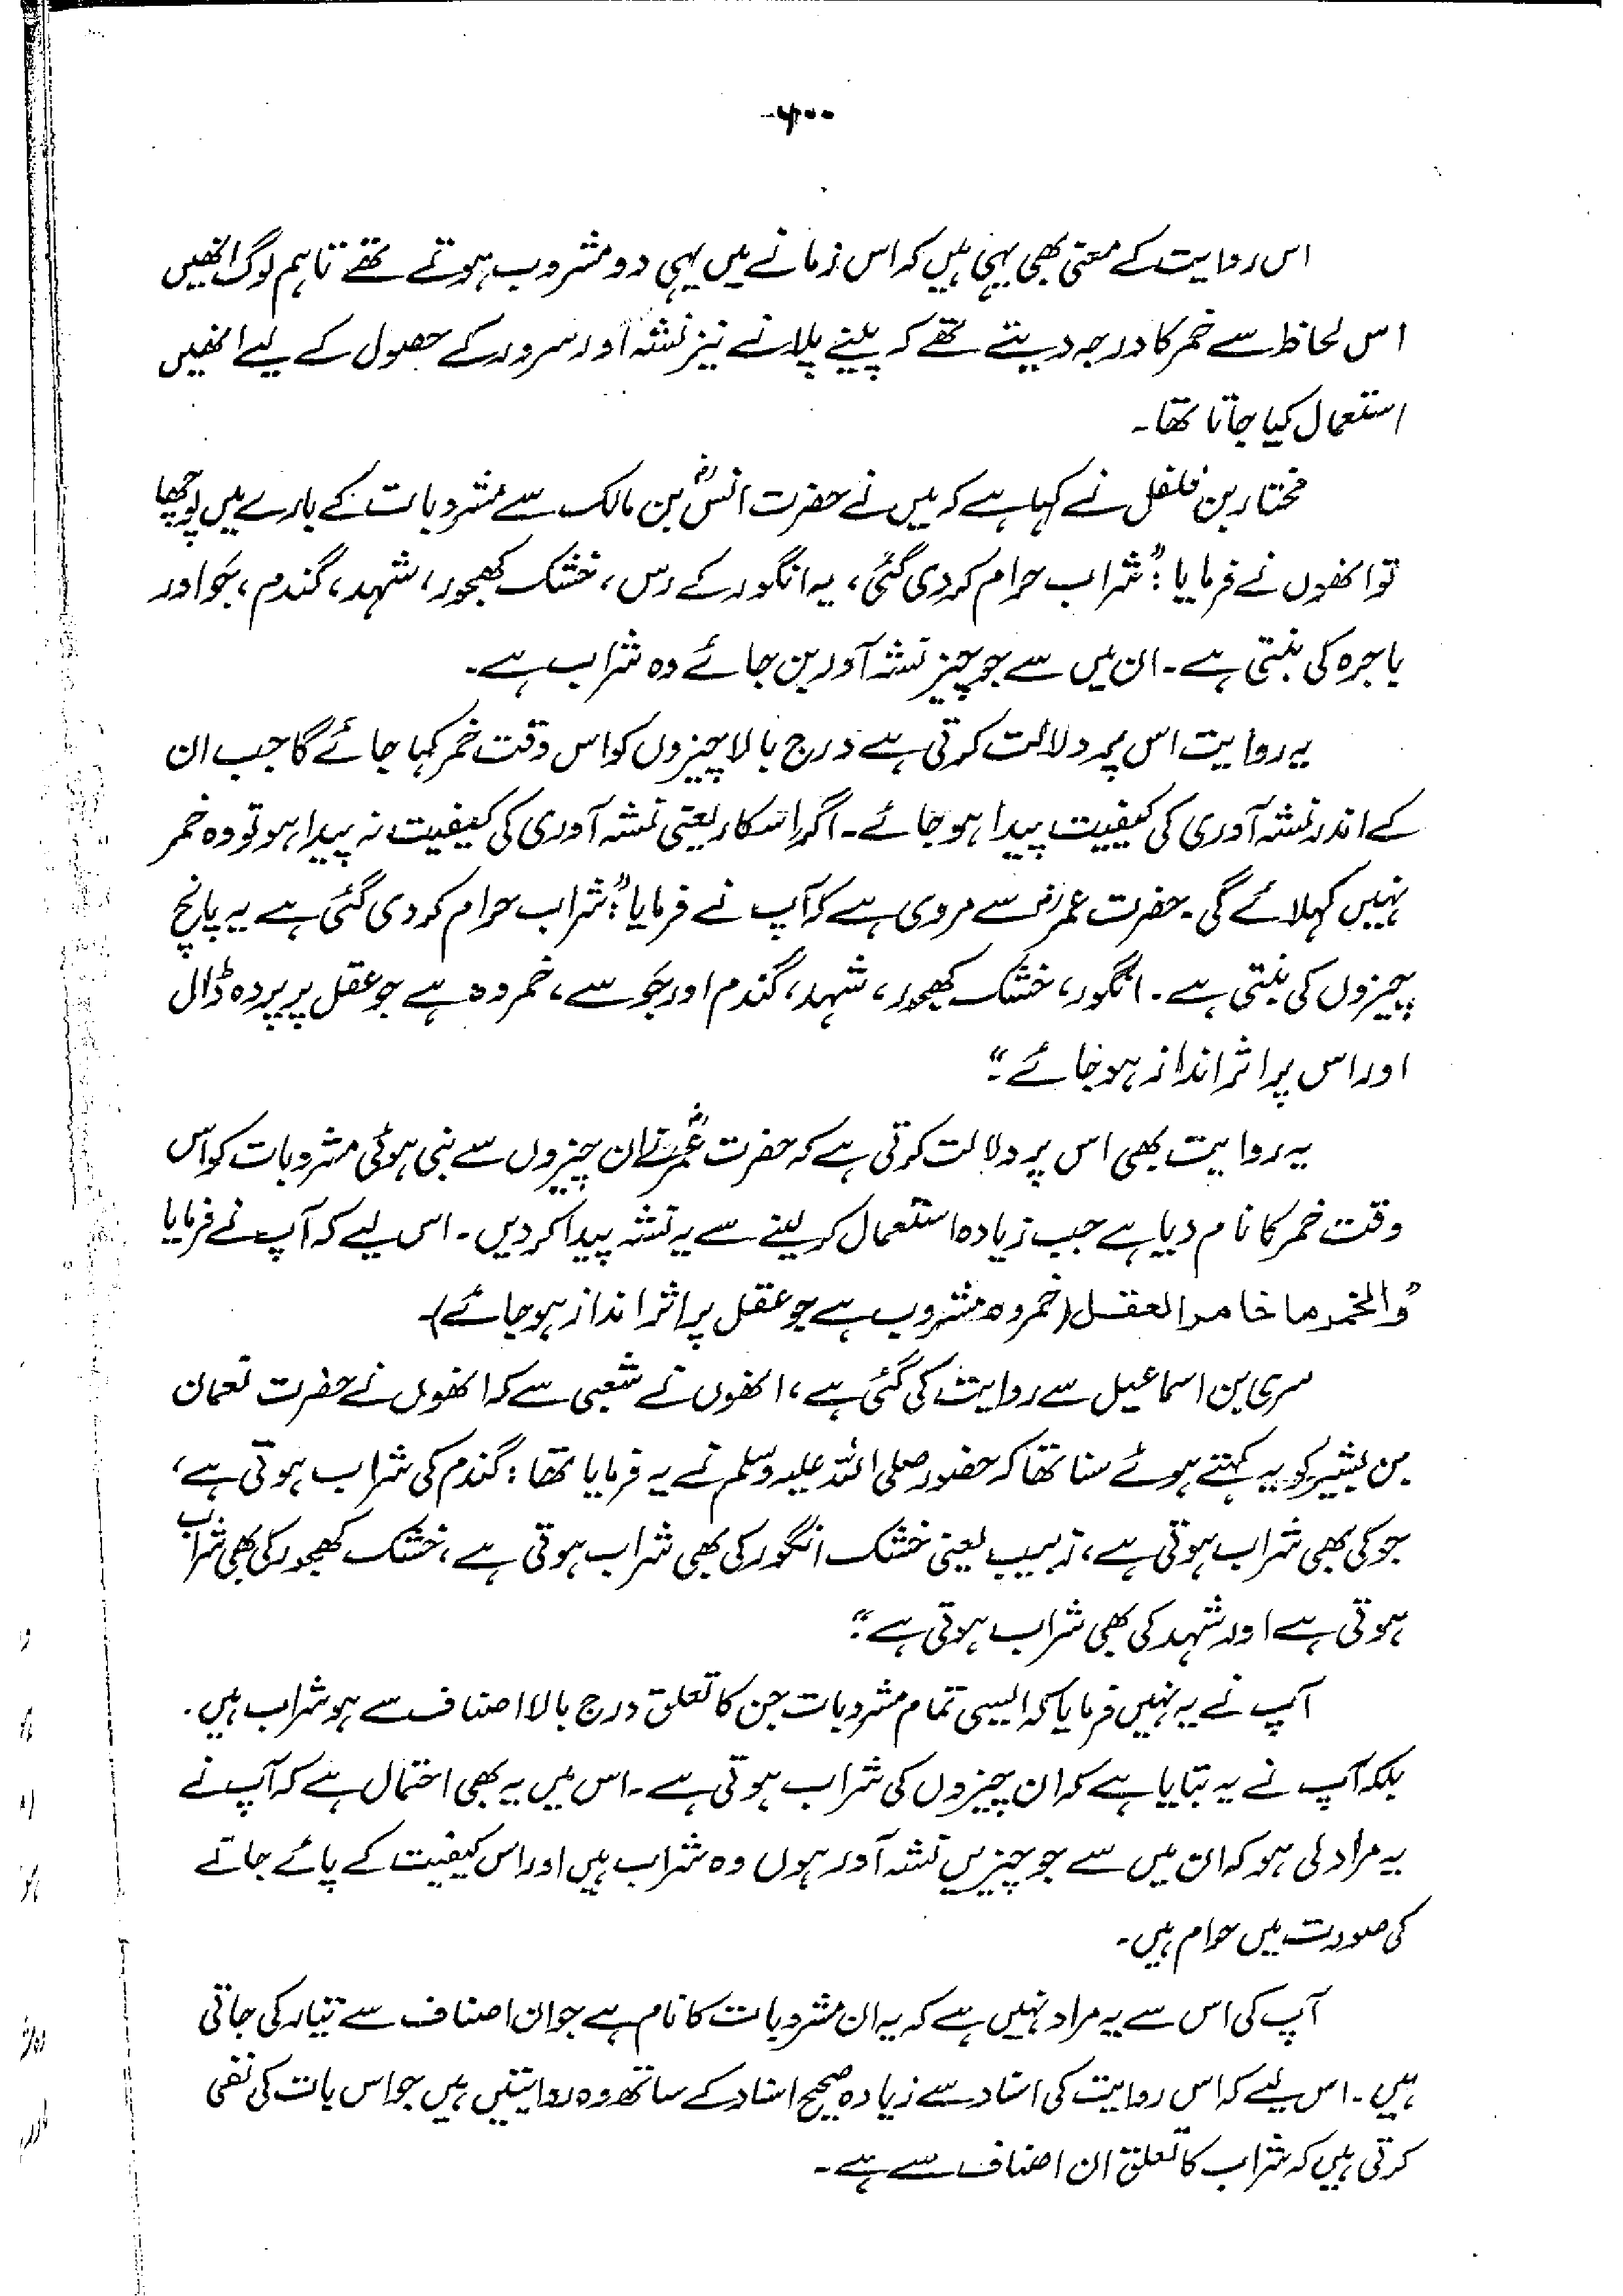 ۶۰۰
اس روایت کے معنی بھی یہی ہیں کہ اس زمانے میں یہی دو مشروب ہوتے تھے تاہم لوگ انھیں
اس لحاظ سے خمر کا درجہ دیتے تھے کہ پینے پلانے نیز نشہ اور سرور کے حصول کے لیے انھیں
استعمال کیا جاتا تھا۔
مختار بن فلفل نے کہا ہے کہ میں نے حضرت انسؓ بن مالک سے مشروبات کے بارے میں پوچھا
تو انھوں نے فرمایا : "شراب حرام کردی گئی، یہ انگور کے رس، خشک کھجور، شہد، گندم، جَو اور
باجرہ کی بنتی ہے۔ ان میں سے جو چیز نشہ آور بن جائے وہ شراب ہے۔
یہ روایت اس پر دلالت کرتی ہے درج بالا چیزوں کو اس وقت خمر کہا جائے گا جب ان
کے اندر نشہ آوری کی کیفیت پیدا ہو جائے۔ اگر اسکار یعنی نشہ آوری کی کیفیت نہ پیدا ہو تو وہ خمر
نہیں کہلائے گی۔ حضرت عمرؓ سے مروی ہے کہ آپ نے فرمایا : "شراب حرام کردی گئی ہے یہ پانچ
چیزوں کی بنتی ہے۔ انگور، خشک کھجور، شہد، گندم اور جَو سے، خمر وہ ہے جو عقل پر پردہ ڈال
اور اس پر اثر انداز ہو جائے"۔
یہ روایت بھی اس پر دلالت کرتی ہے کہ حضرت عمرؓ نے ان چیزوں سے بنی ہوئی مشروبات کو اس
وقت خمر کا نام دیا ہے جب زیادہ استعمال کر لینے سے یہ نشہ پیدا کر دیں۔ اس لیے کہ آپ نے فرمایا
"والخمر ما خامر العقل (خمر وہ مشروب ہے جو عقل پر اثر انداز ہو جائے)۔
سری بن اسماعیل سے روایت کی گئی ہے، انھوں نے شعبی سے کہ انھوں نے حضرت نعمان
بن بشیر کو یہ کہتے ہوئے سنا تھا کہ حضور صلی اللہ علیہ وسلم نے یہ فرمایا تھا : گندم کی شراب ہوتی ہے،
جو کی بھی شراب ہوتی ہے، زبیب یعنی خشک انگور کی بھی شراب ہوتی ہے، خشک کھجور کی بھی شراب
ہوتی ہے اور شہد کی بھی شراب ہوتی ہے"۔
آپ نے یہ نہیں فرمایا کہ ایسی تمام مشروبات جن کا تعلق درج بالا اصناف سے ہو شراب ہیں۔
بلکہ آپ نے یہ بتایا ہے کہ ان چیزوں کی شراب ہوتی ہے۔ اس میں یہ بھی احتمال ہے کہ آپ نے
یہ مراد لی ہو کہ ان میں سے جو چیزیں نشہ آور ہوں وہ شراب ہیں اور اس کیفیت کے پائے جانے
کی صورت میں حرام ہیں۔
آپ کی اس سے یہ مراد نہیں ہے کہ یہ ان مشروبات کا نام ہے جو ان اصناف سے تیار کی جاتی
ہیں۔ اس لیے کہ اس روایت کی اسناد سے زیادہ صحیح اسناد کے ساتھ وہ روایتیں ہیں جو اس بات کی نفی
کرتی ہیں کہ شراب کا تعلق ان اصناف سے ہے۔